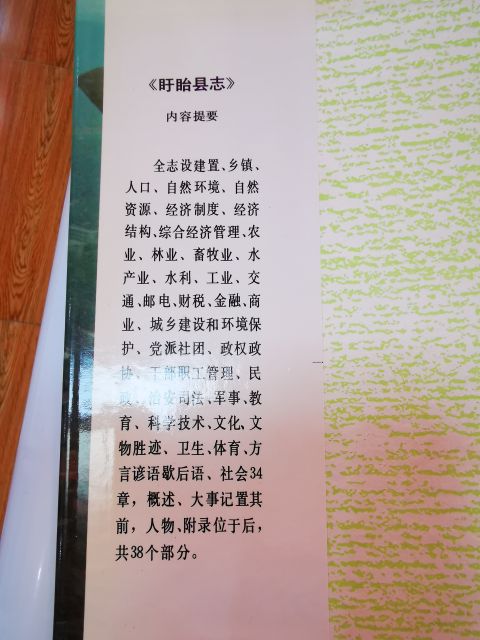 《盱眙县志》
内容提要
全志设建置、乡镇、
人口、自然环境、自然
资源、经济制度、经济
结构、综合经济管理、农
业、林业、畜牧业、水
产业、水利、工业、交
通、邮电、财税、金融、商
业、城乡建设和环境保
护、党派社团、政权政
协、干部职工管理、民
政、治安司法、军事、教
育、科学技术、文化、文
物胜迹、卫生、体育、方
言谚语歇后语、社会34
章，概述、大事记置其
前，人物、附录位于后，
共38个部分。